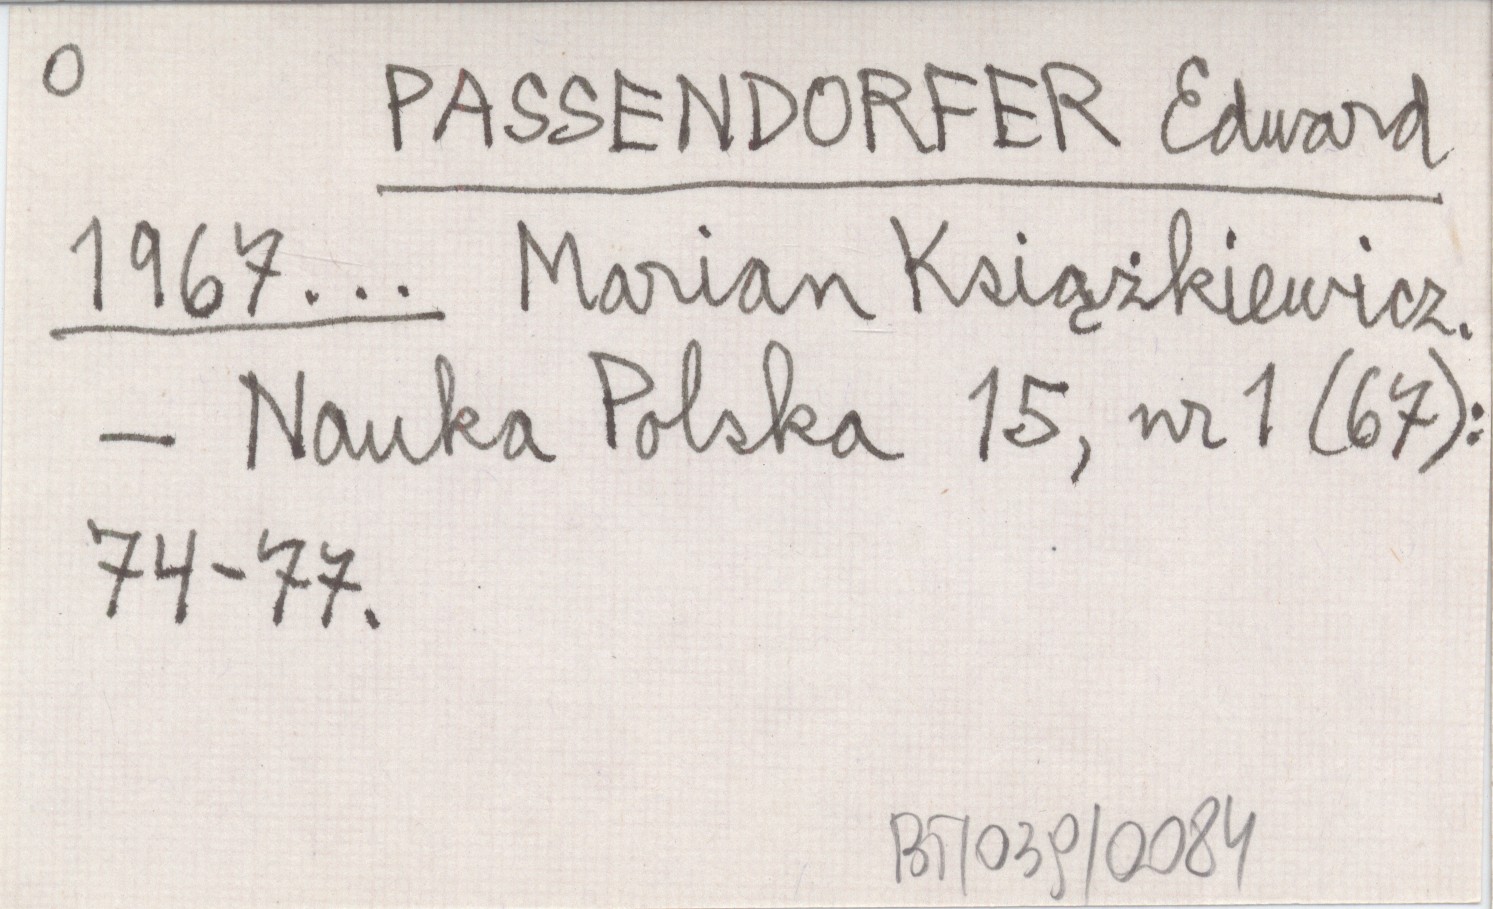 O
PASSENDORFER Edward
1967... Marian Książkiewicz.
– Nauka Polska 15, nr 1 (67):
74-77.
BT/039/0084